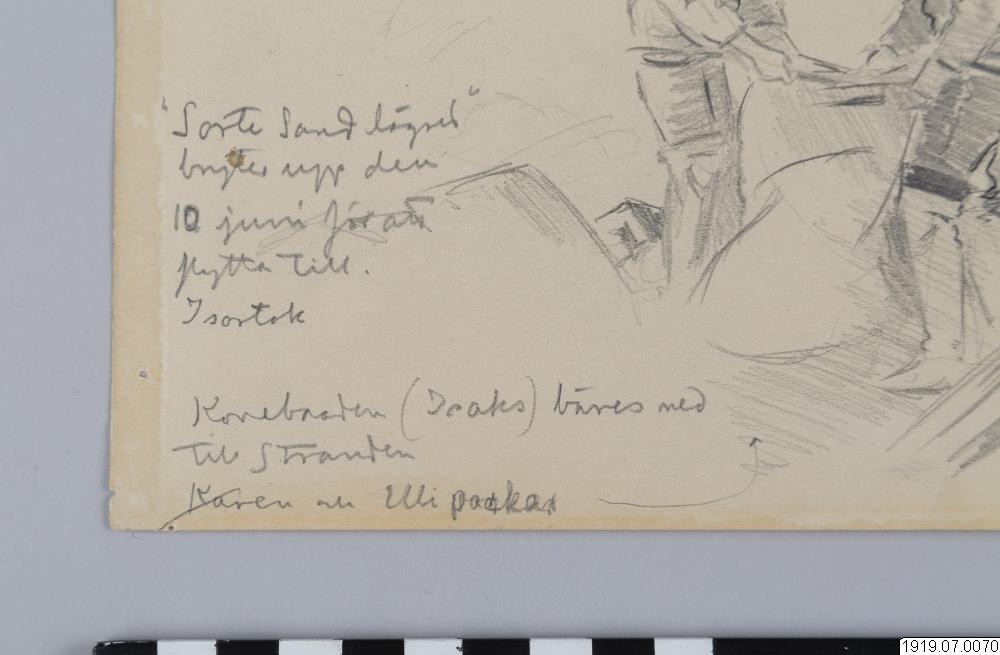 "Sorte Sand lägret"
bryter upp den
10 juni för att
flytta till.
Isortok
Konebaaden (Isaks) bäres ned
till Stranden
Karen och Elli packar
1919.07.0070